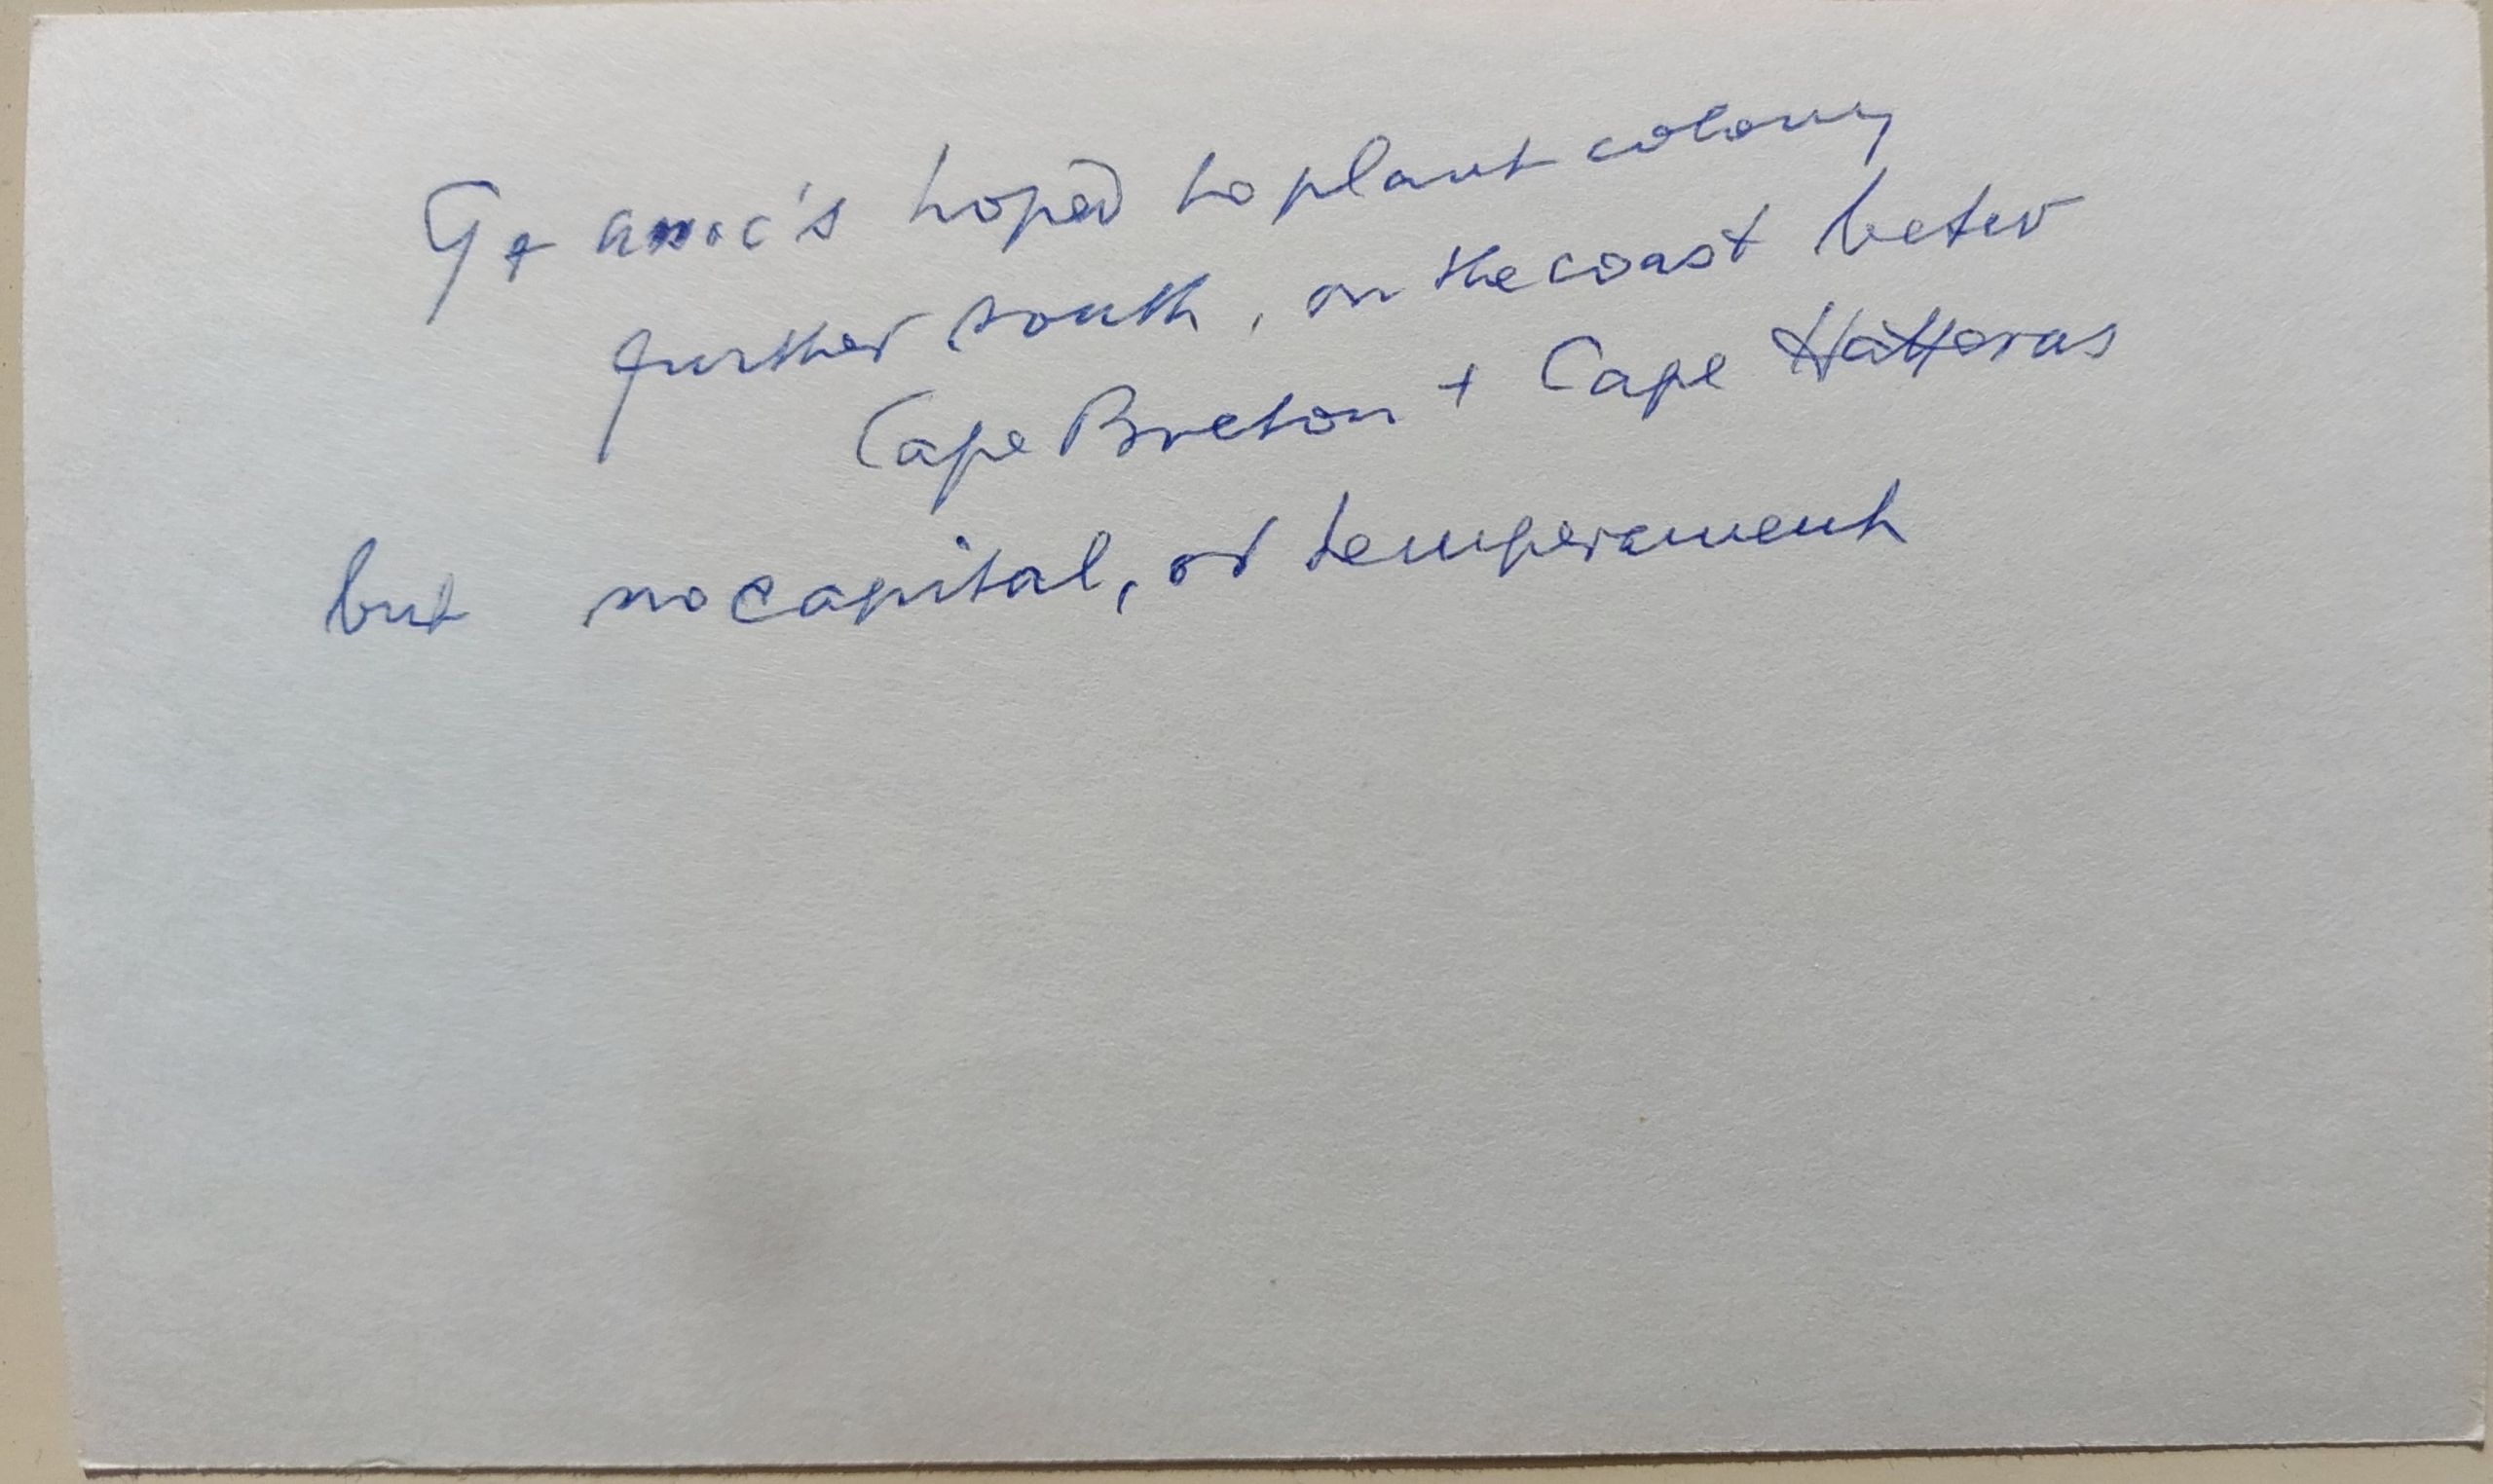 G + assoc's hoped to plant colony
further south, on the coast betw
Cape Breton + Cape Hatteras
but no capital, or temperament